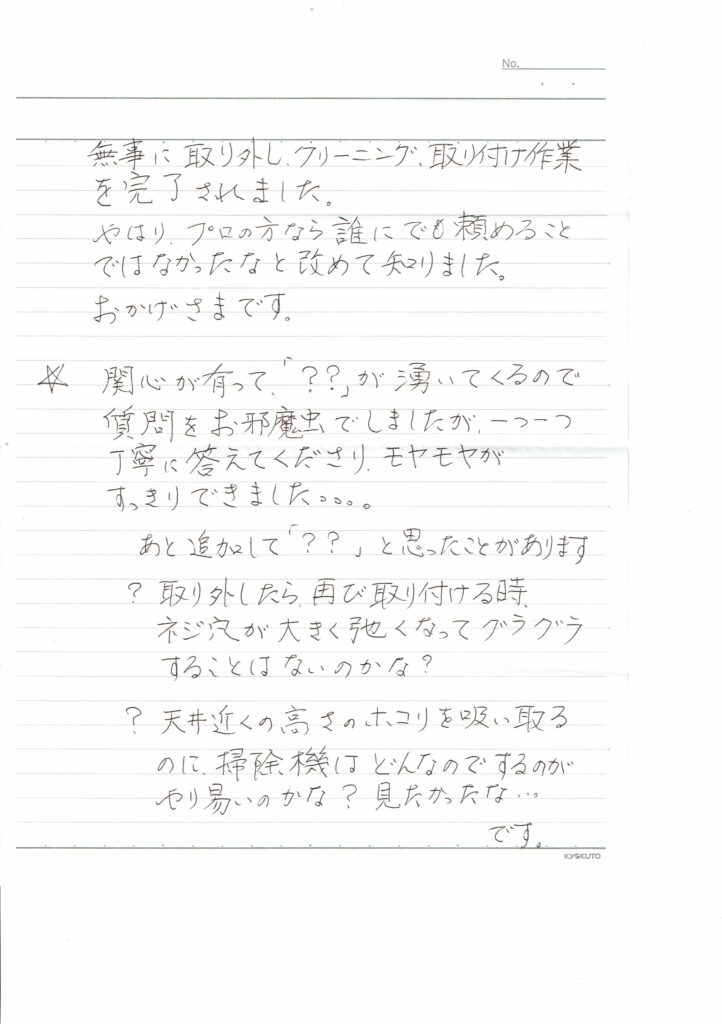 No.
無事に取り外し、クリーニング、取り付け作業
を完了されました。
やはり、プロの方なら誰にでも頼めること
ではなかったなと改めて知りました。
おかげさまです。
☆ 関心が有って、「??」が湧いてくるので
質問をお邪魔虫でしましたが、一つ一つ
丁寧に答えてくださり、モヤモヤが
すっきりできました。。。。
あと追加して「??」と思ったことがあります
? 取り外したら、再び取り付ける時、
ネジ穴が大きく弛くなってグラグラ
することはないのかな?
? 天井近くの高さのホコリを吸い取る
のに、掃除機はどんなのでするのが
やり易いのかな? 見たかったな...
です。
KYOKUTO